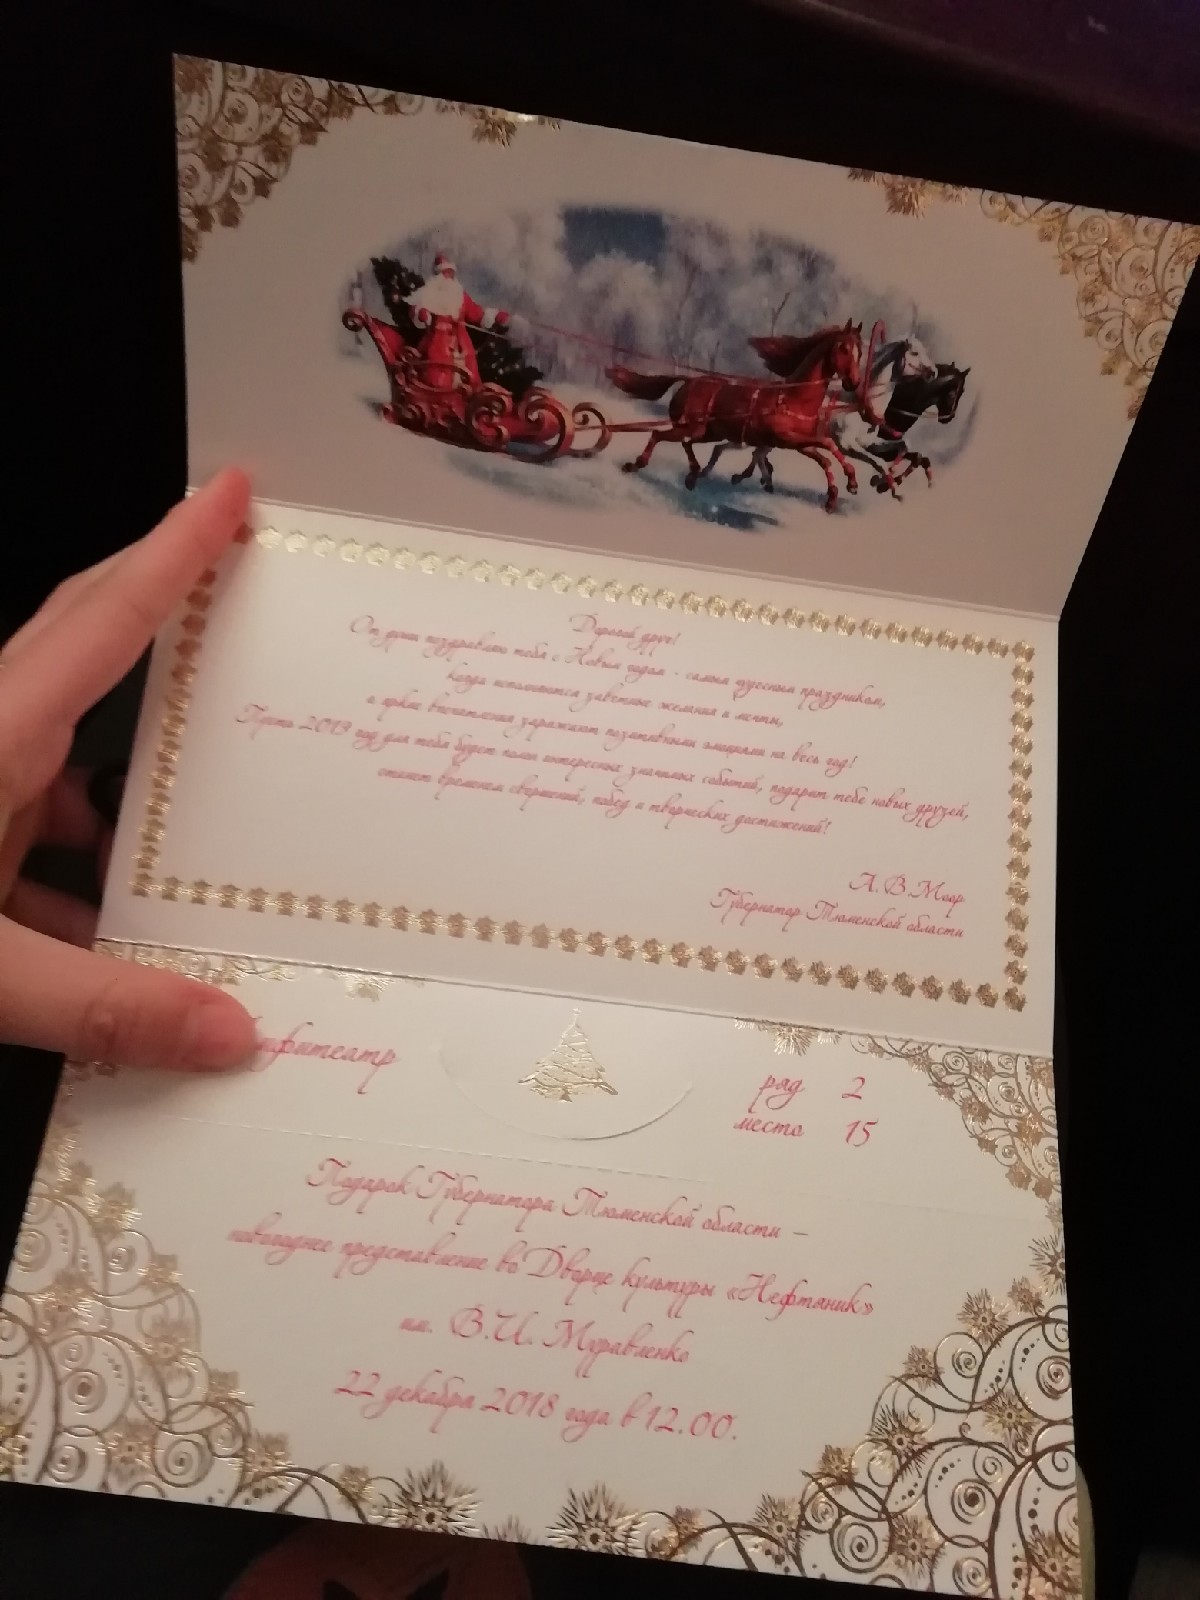 Дорогой друг!
От души поздравляю тебя с Новым годом - самым чудесным праздником,
когда исполняются заветные желания и мечты,
а яркие впечатления заряжают позитивными эмоциями на весь год!
Пусть 2019 год для тебя будет полон интересных значимых событий, подарит тебе новых друзей,
станет временем свершений, побед и творческих достижений!
А.В.Моор
Губернатор Тюменской области
мфитеатр
ряд 2
место 15
Подарок Губернатора Тюменской области –
новогоднее представление во Дворце культуры «Нефтяник»
им. В.И. Муравленко
22 декабря 2018 года в 12.00.